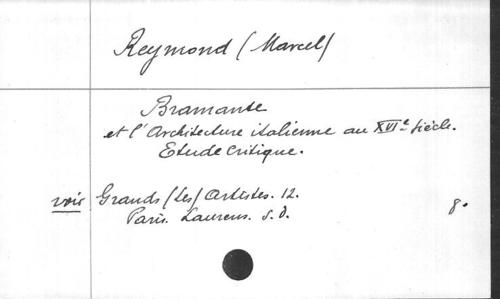 Reymond (Marcel)
Bramante
et l'Architecture italienne au XVIe Siècle.
Etude Critique.
voir Grands (Les) Artistes. 12.
Paris. Laurens. S. D. 8.